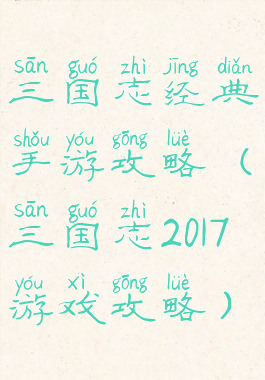 sān guó zhì jīng diǎn
三国志经典
shǒu yóu gōng lüè
手游攻略（
sān guó zhì
三国志2017
yóu xì gōng lüè
游戏攻略）